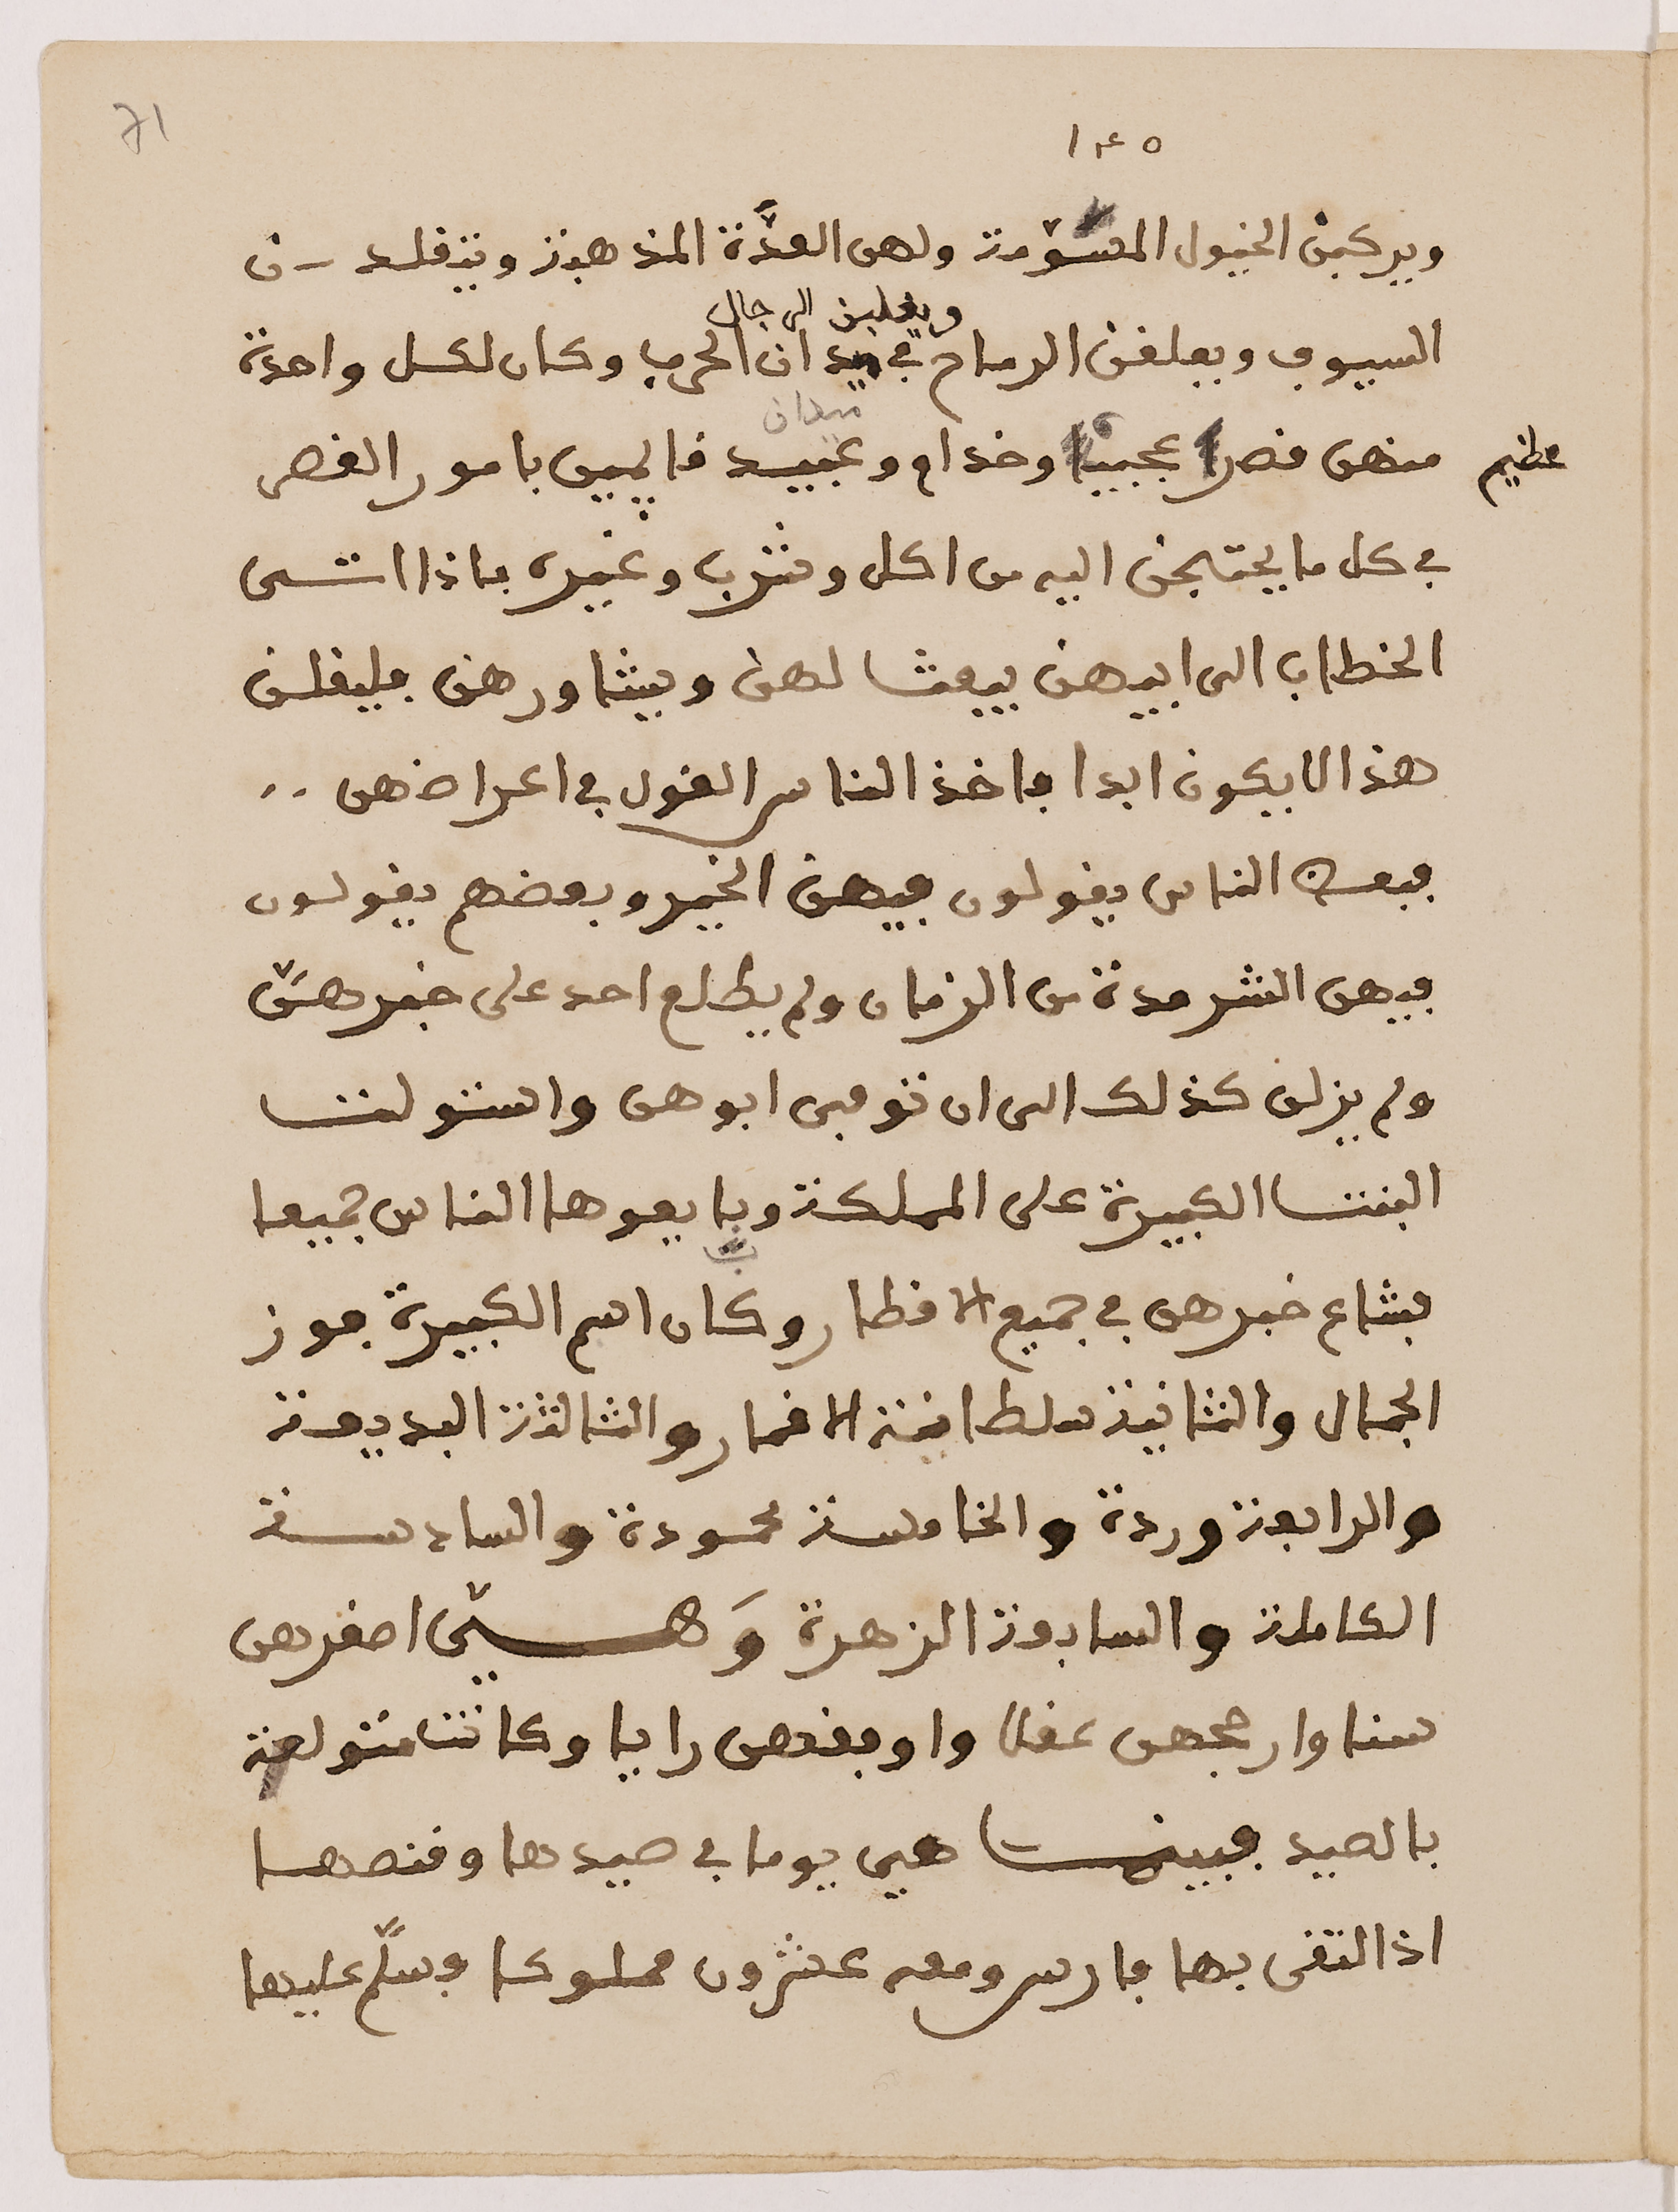 71
١٤٥
ويركبن الخيول المسوّمة ولهن العدّة المذهبة ويتقلدن
ويغلبن الرجال
السيوف ويعلقن الرماح في ميدان الحرب وكان لكل واحدة
ميدان
منهن قصرا عجيبا وخدام وعبيد قايمين بامور القصر
عظيم
في كل ما يحتجن اليه من اكل وشرب وغيره فاذا اتى
الخطاب الى ابيهن يبعث لهن ويشاورهن فيقلن
هذا لا يكون ابدا فاخذ الناس القول في اعراضهن ..
فبعض الناس يقولون فيهن الخير وبعضهم يقولون
فيهن الشر مدة من الزمان ولم يطلع احد على خبرهنّ
ولم يزلن كذلك الى ان توفى ابوهن واستولت
البنت الكبيرة على المملكة وبايعوها الناس جميعا
فشاع خبرهن في جميع الاقطار وكان اسم الكبيرة فوز
الجمال والثانية سلطانة الاقمار والثالثة البديعة
والرابعة وردة والخامسة محمودة والسادسة
الكاملة والسابعة الزهرة وَهـــيّ اصغرهن
سنا وارجحهن عقلا واوفقهن رايا وكانت متولعة
بالصيد فبينما هي يوما في صيدها وقنصها
اذ التقى بها فارس ومعه عشرون مملوكا فسلّم عليها